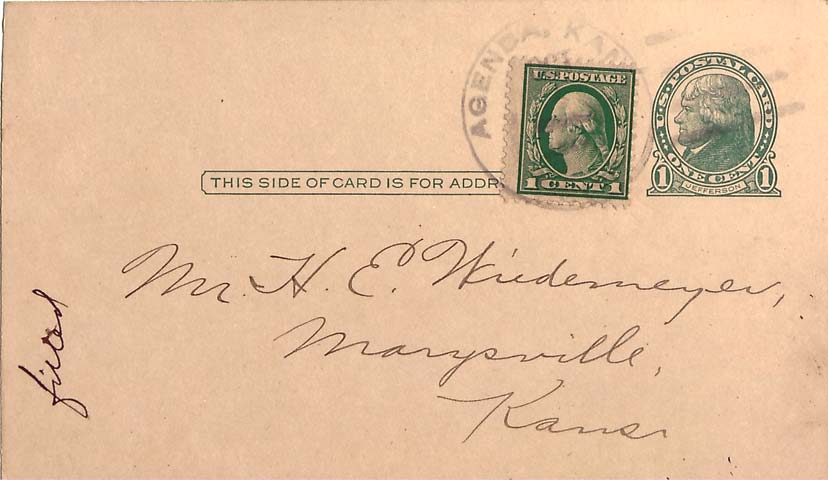 AGENDA, KAN
U.S. POSTAGE
1 CENT 1
U.S. POSTAL CARD
ONE CENT
1 JEFFERSON 1
THIS SIDE OF CARD IS FOR ADDR
Mr. H. E. Wiedemeyer,
Marysville,
Kans.
filled